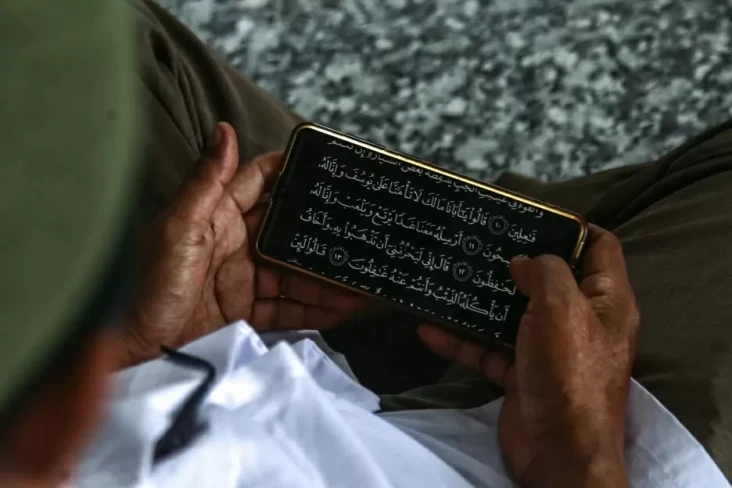 وَأَلْقُوهُ فِي غَيَـٰبَتِ الْجُبِّ يَلْتَقِطْهُ بَعْضُ السَّيَّارَةِ إِن كُنتُمْ
فَـٰعِلِينَ ١٠ قَالُوا۟ يَـٰٓأَبَانَا مَا لَكَ لَا تَأْمَ۫نَّا عَلَىٰ يُوسُفَ وَإِنَّا لَهُۥ
١١ أَرْسِلْهُ مَعَنَا غَدًا يَرْتَعْ وَيَلْعَبْ وَإِنَّا لَهُۥ
لَحَـٰفِظُونَ ١٢ قَالَ إِنِّى لَيَحْزُنُنِىٓ أَن تَذْهَبُوا۟ بِهِۦ وَأَخَافُ
أَن يَأْكُلَهُ ٱلذِّئْبُ وَأَنتُمْ عَنْهُ غَـٰفِلُونَ ١٣ قَالُوا۟ لَئِنْ